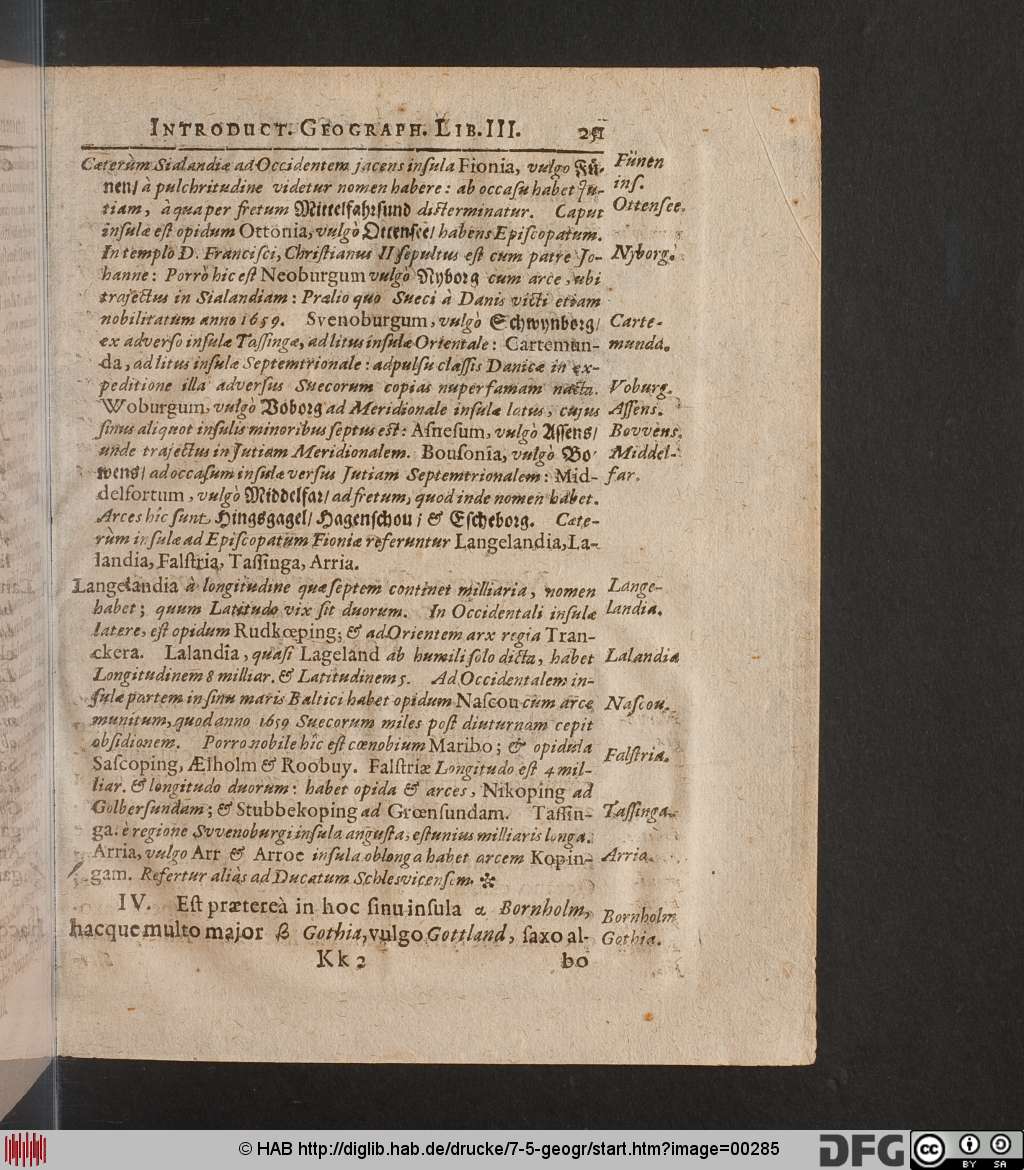 INTRODUCT. GEOGRAPH. LIB. III. 251
Cæterùm Sialandiæ ad Occidentem jacens insula Fionia, vulgo Fü-
nen/ à pulchritudine videtur nomen habere: ab occasu habet Ju-
tiam, à qua per fretum Mittelfahrsund disterminatur. Caput
insulæ est opidum Ottonia, vulgò Ottensee/ habens Episcopatum.
In templo D. Francisci, Christianus II sepultus est cum patre Jo-
hanne: Porrò hic est Neoburgum vulgò Nyborg cum arce, ubi
trajectus in Sialandiam: Prælio quo Sueci à Danis victi etiam
nobilitatum anno 1659. Svenoburgum, vulgò Schwynborg/
ex adverso insulæ Tassingæ, ad litus insulæ Orientale: Cartemun-
da, ad litus insulæ Septemtrionale: adpulsu classis Danicæ in ex-
peditione illa adversus Suecorum copias nuper famam nacta.
Woburgum, vulgò Voborg ad Meridionale insulæ latus, cujus
sinus aliquot insulis minoribus septus est: Asnesum, vulgò Assens/
unde trajectus in Jutiam Meridionalem. Bousonia, vulgò Bo-
wens/ ad occasum insulæ versus Jutiam Septemtrionalem: Mid-
delfortum, vulgò Middelfar/ ad fretum, quod inde nomen habet.
Arces hîc sunt Hingsgagel/ Hagenschou/ & Escheborg. Cæte-
rùm insulæ ad Episcopatum Fioniæ referuntur Langelandia, La-
landia, Falstria, Tassinga, Arria.
Langelandia à longitudine quæ septem continet milliaria, nomen
habet; quum Latitudo vix sit duorum. In Occidentali insulæ
latere, est opidum Rudkœping; & ad Orientem arx regia Tran-
ckera. Lalandia, quasi Lageland ab humili solo dicta, habet
Longitudinem 8 milliar. & Latitudinem 5. Ad Occidentalem in-
sulæ partem in sinu maris Baltici habet opidum Nascou cum arce
munitum, quod anno 1659 Suecorum miles post diuturnam cepit
obsidionem. Porro nobile hîc est cœnobium Maribo; & opidula
Sascoping, Ælholm & Roobuy. Falstriæ Longitudo est 4 mil-
liar. & longitudo duorum: habet opida & arces, Nikoping ad
Golbersundam; & Stubbekoping ad Grœnsundam. Tassin-
ga. è regione Svvenoburgi insula angusta, est unius milliaris longa.
Arria, vulgo Arr & Arroe insula oblonga habet arcem Kopin-
gam. Refertur aliàs ad Ducatum Schlesvicensem. ✻
IV. Est prætereà in hoc sinu insula α Bornholm,
hacque multo major β Gothia, vulgo Gottland, saxo al-
Kk 2 bo
Fünen
ins.
Ottensee.
Nyborg.
Carte-
munda.
Voburg.
Assens.
Bovvens.
Middel-
far.
Lange-
landia.
Lalandia
Nascou.
Falstria.
Tassinga.
Arria.
Bornholm
Gothia.
© HAB http://diglib.hab.de/drucke/7-5-geogr/start.htm?image=00285
DFG
cc
BY SA